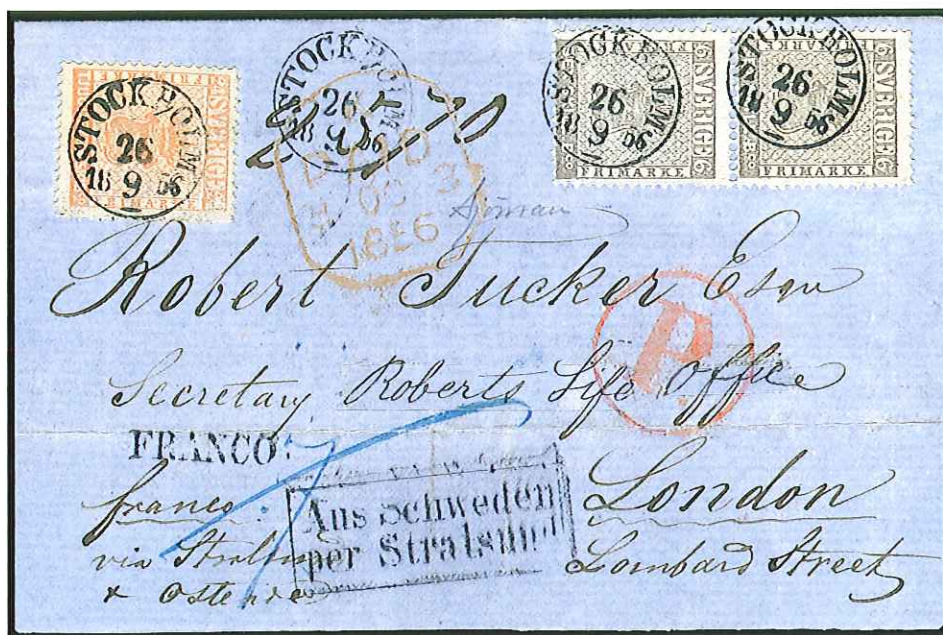 STOCKHOLM
26
18 9 56
SVERIGE
FRIMARKE
STOCKHOLM
26
18 9 56
STOCKHOLM
26
18 9 56
SVERIGE
FRIMARKE
STOCKHOLM
26
18 9 56
SVERIGE
FRIMARKE
3
1856
P.
Robert Tucker Esqu
Secretary Roberts Life Office
FRANCO.
franco.
via Stralsund
& Ostende
Aus Schweden
per Stralsund
London
Lombard Street